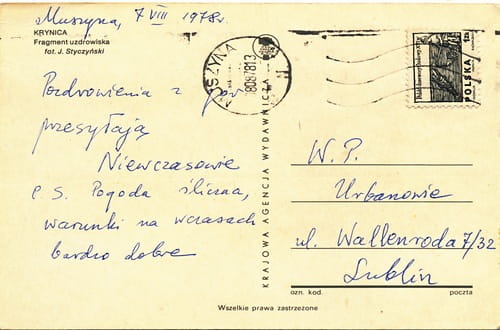 Muszyna, 7 VIII 1978r.
KRYNICA
Fragment uzdrowiska
fot. J. Styczyński
Pozdrowienia z gór
przesyłają
Niewczasowie
P.S. Pogoda śliczna,
warunki na wczasach
bardzo dobre
MUSZYNA
08087813
KRAJOWA AGENCJA WYDAWNICZA
POLSKA
W.P.
Urbanowie
ul. Wallenroda 7/32
Lublin
ozn. kod.
poczta
Wszelkie prawa zastrzeżone